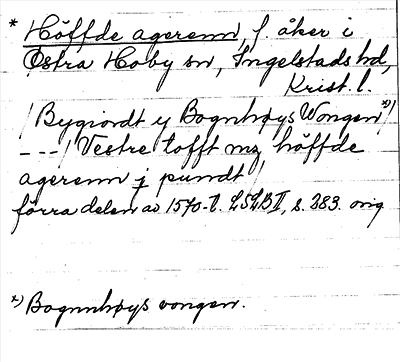 * Höffde agerenn, f. åker i
Östra Hoby sn, Ingelstads hd,
Krist. l.
/ Bygiordt y Bognhøys Wongen *)/
---/ Vestre tofft mz höffde
agerenn j pundt /
förra delen av 1570-t. LSLB II, s. 283. orig
*) Bognnhøys vongen.